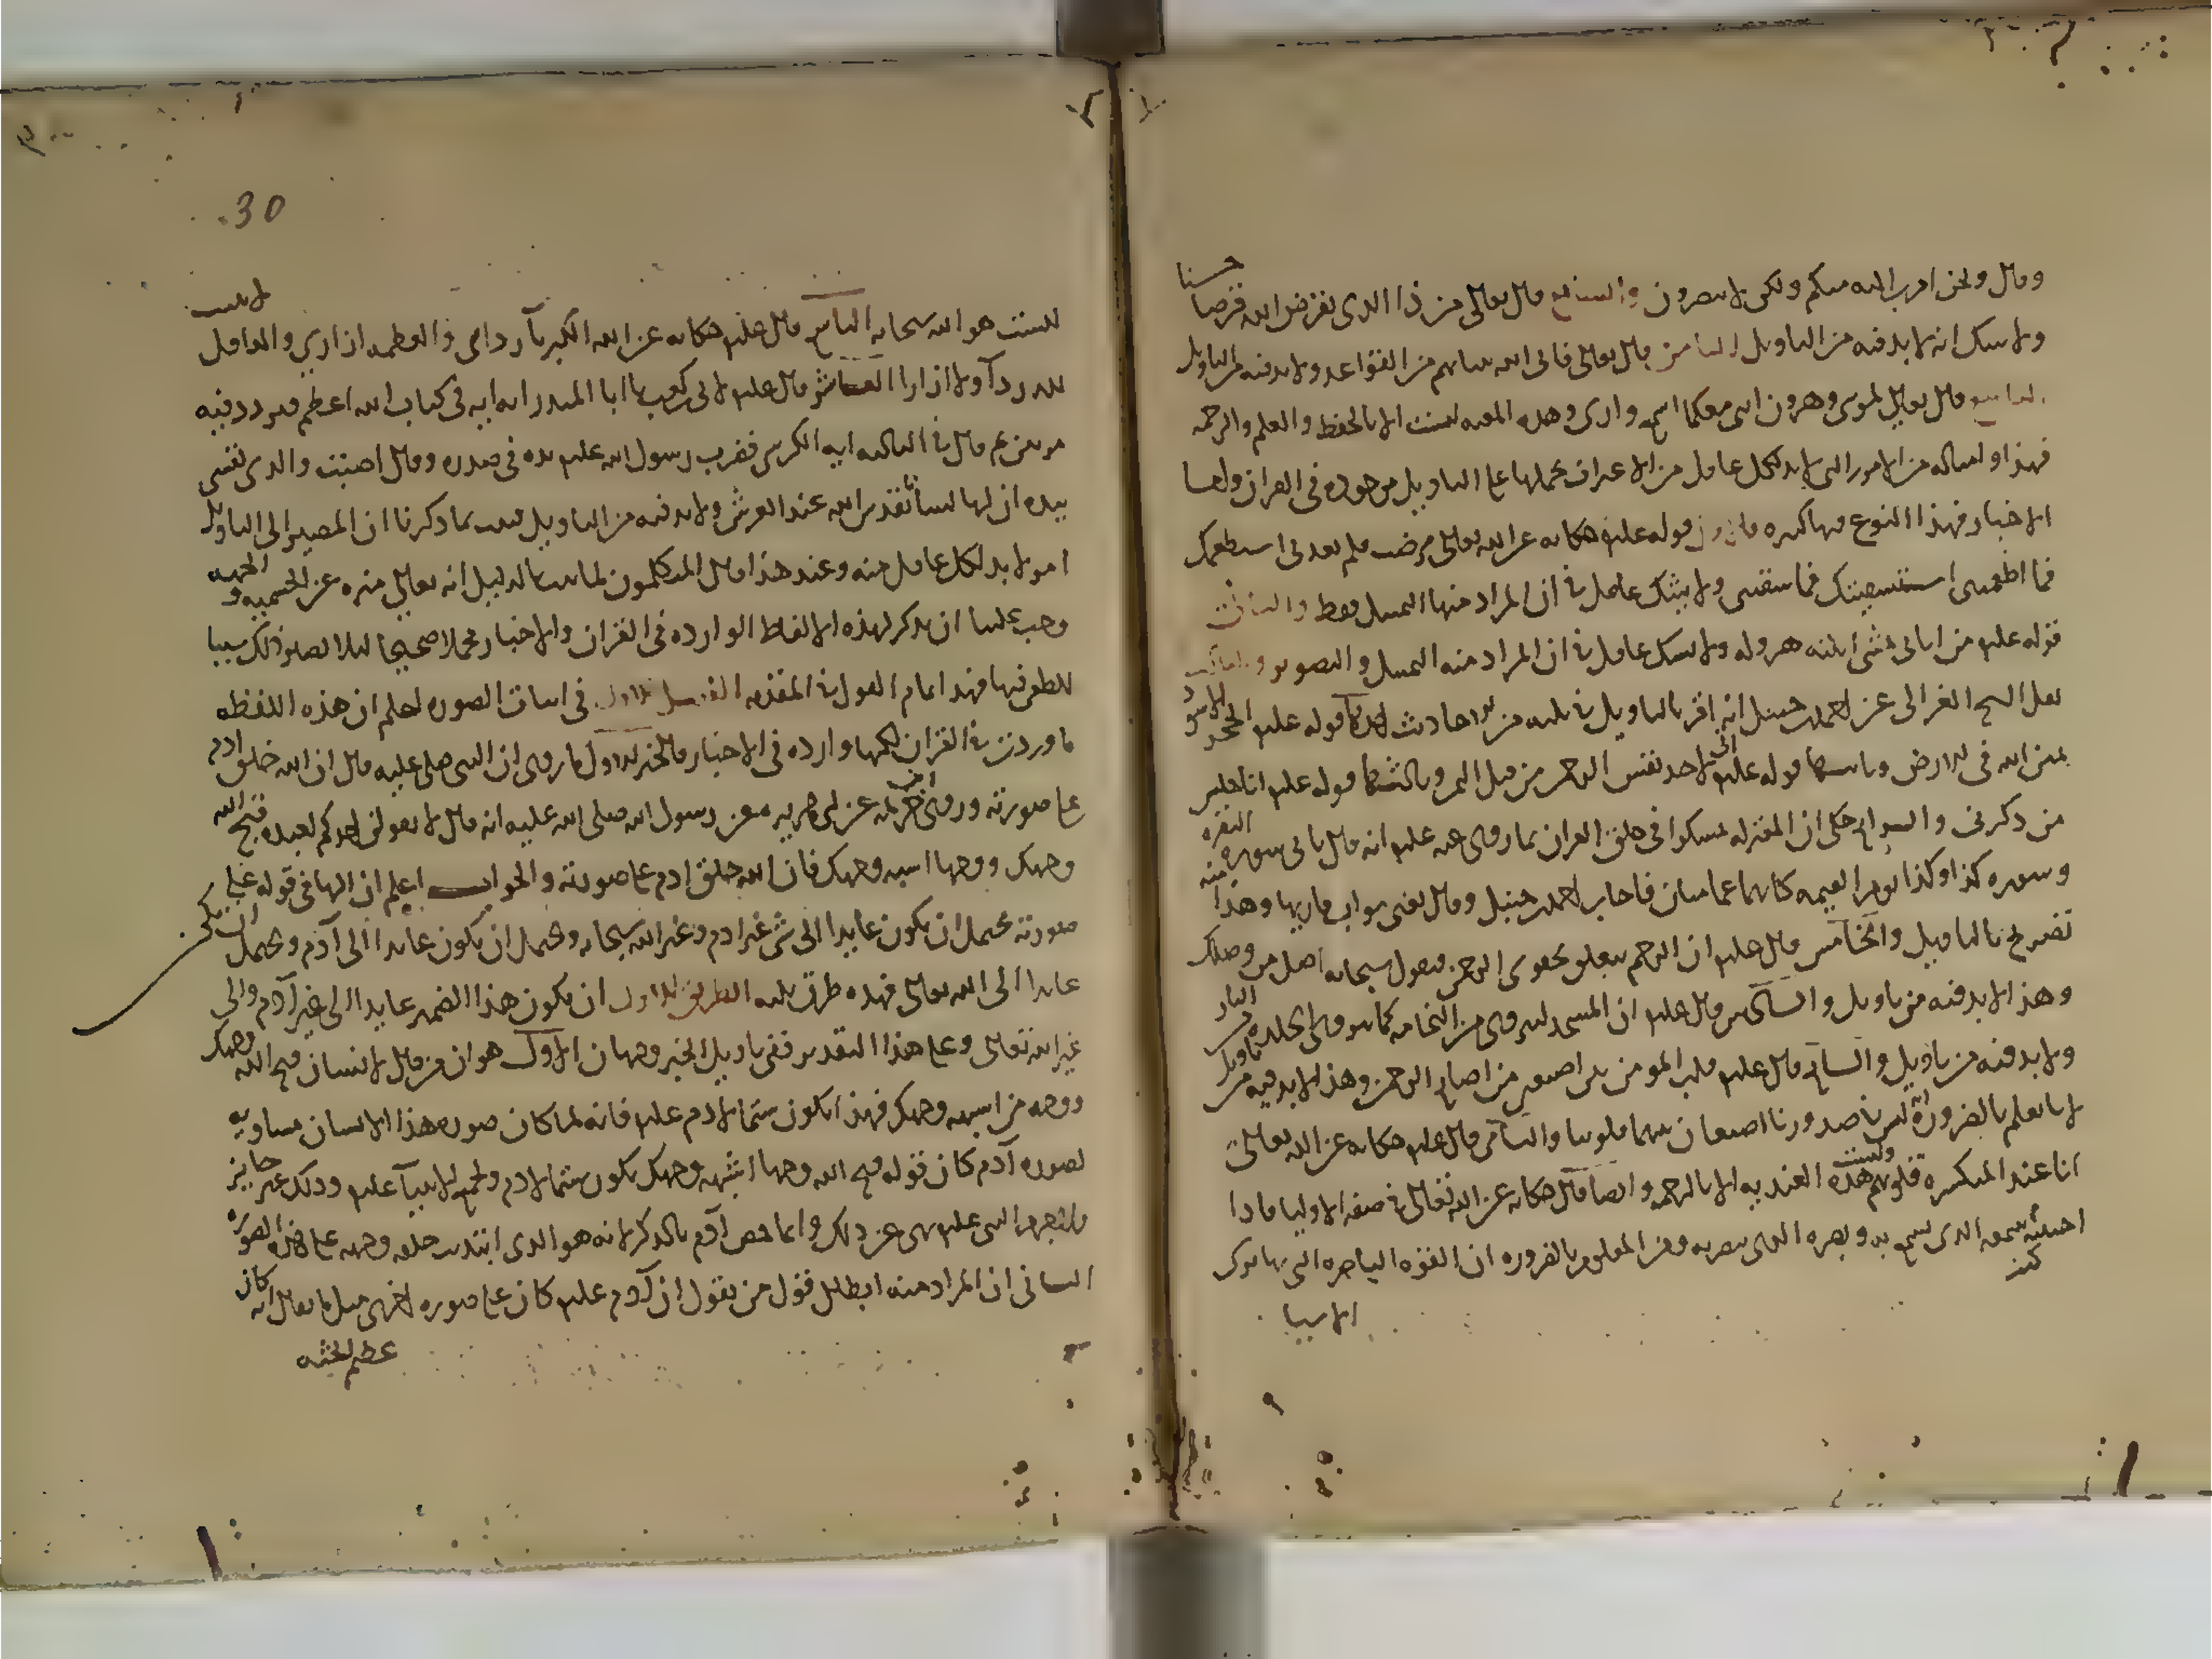 وقال ونحن اقرب اليه منكم ولكن لا تبصرون والسابع قال تعالى من ذا الذي يقرض الله قرضا حسنا
ولا شك انه لا بد فيه من التاويل الثامن قال تعالى فاتى الله بنيانهم من القواعد ولا بد فيه من التاويل
التاسع قال تعالى لموسى وهرون انني معكما اسمع وارى وهذه المعيه ليست الا بالحفظ والعلم والرحمه
فهذا وامثاله من الامور التي لا بد لكل عاقل من الاعتراف بحملها على التاويل موجوده في القران واما
الاخبار فهذا النوع فيها كثيره فالاول قوله عليه حكايه عن الله تعالى مرضت فلم تعدني استطعمتك
فما اطعمتني استسقيتك فما سقيتني ولا يشك عاقل في ان المراد منها التمثيل فقط والثاني
قوله عليه من اتاني يمشي اتيته هروله ولا يشك عاقل في ان المراد منه التمثيل والتصوير والثالث
نقل الشيخ الغزالي عن احمد بن حنبل انه اقر بالتاويل في ثلثه من الاحاديث احدها قوله عليه الحجر الاسود
يمين الله في الارض وثانيها قوله عليه اني لاجد نفس الرحمن من قبل اليمن وثالثها قوله عليه انا جليس
من ذكرني والرابع حكى ان المعتزله تمسكوا في خلق القران بما روى عنه عليه انه قال تاتي سوره البقره
وسوره كذا وكذا يوم القيمه كانهما غمامتان فاجاب احمد بن حنبل وقال يعني ثواب قاريها وهذا منه
تصريح بالتاويل والخامس قال عليه ان الرحم يتعلق بحقوى الرحمن فيقول سبحانه اصل من وصلك
وهذا لا بد فيه من تاويل والسادس قال عليه ان المسجد لينزوي من النخامه كما تنزوي الجلده في النار
ولا بد فيه من تاويل والسابع قال عليه قلب المومن بين اصبعين من اصابع الرحمن وهذا لا بد فيه من تاويل
لانا نعلم بالضروره انه ليس في صدورنا اصبعان بينهما قلوبنا والثامن قال عليه حكايه عن الله تعالى
انا عند المنكسره قلوبهم وليست هذه العنديه الا بالرحمه وايضا قال حكايه عن الله تعالى في صفه الاوليا فاذا
احببته كنت سمعه الذي يسمع به وبصره الذي يبصر به ومن المعلوم بالضروره ان القوه الباصره التي بها يدرك
الاشيا
30
ليست هو الله سبحانه التاسع قال عليه حكايه عن الله الكبريآ ردائي والعظمه ازاري والعاقل لا يثبت
لله ردآ ولا ازارا العاشر قال عليه لابي بن كعب يا ابا المنذر ايه ايه في كتاب الله اعظم فتردد فيه
مرتين ثم قال في الثالثه ايه الكرسي فضرب رسول الله عليه يده في صدره وقال اصبت والذي نفسي
بيده ان لها لسانا يقدس الله عند العرش ولا بد فيه من التاويل فثبت بما ذكرنا ان المصير الى التاويل
امر لا بد لكل عاقل منه وعند هذا قال المتكلمون لما ثبت بالدليل انه تعالى منزه عن الجسميه والجهه
وجب علينا ان نذكر لهذه الالفاظ الوارده في القران والاخبار محملا صحيحا لئلا يصير ذلك سببا
للطعن فيها فهذا تمام القول في المقدمه الفصل الاول في اثبات الصوره اعلم ان هذه اللفظه
ما وردت في القران لكنها وارده في الاخبار فالخبر الاول ما روى ان النبي صلى عليه قال ان الله خلق ادم
على صورته وروى ابن خزيمه عن ابي هريره عن رسول الله صلى الله عليه انه قال لا يقولن احدكم لعبده قبح الله
وجهك ووجها اشبه وجهك فان الله خلق ادم على صورته والجواب اعلم ان الها في قوله على
صورته يحتمل ان يكون عايدا الى شي غير ادم وغير الله سبحانه ويحتمل ان يكون عايدا الى آدم ويحتمل ان يكون
عايدا الى الله تعالى فهذه طرق ثلثه الطريق الاول ان يكون هذا الضمير عايدا الى غير آدم والى
غير الله تعالى وعلى هذا التقدير ففي تاويل الخبر وجهان الاول هو ان من قال لانسان قبح الله وجهك
ووجه من اشبه وجهك فهذا يكون شتما لادم عليه فانه لما كان صوره هذا الانسان مساويه
لصوره آدم كان قوله قبح الله وجها اشبه وجهك يكون شتما لادم ولجميع الانبيآ عليه وذلك غير جايز
فلا جرم النبي عليه نهى عن ذلك وانما خص آدم بالذكر لانه هو الذي ابتدئت خلقه وجهه على هذه الصوره
الثاني ان المراد منه ابطال قول من يقول ان آدم عليه كان على صوره اخرى مثل ما يقال انه كان
عظيم الجثه